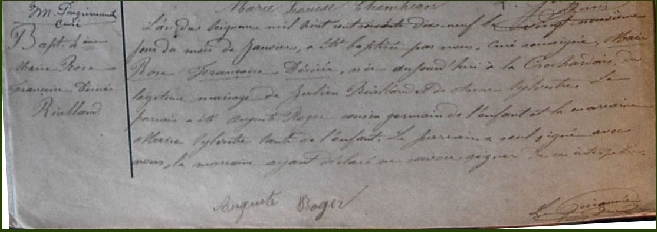 Marie Louise
Curé
Bapt. d'une
Marie Rose
Françoise Désirée
Rialland
L'an du Seigneur mil huit cent soixante dix neuf le vingt neuvième
jour du mois de Janvier, a été baptisée par nous, curé soussigné, Marie
Rose Françoise Désirée, née aujourd'hui à la du
légitime mariage de Julien Rialland et de Sylvestre. Le
parrain a été Auguste Roger cousin germain de l'enfant et la marraine
Marie Sylvestre tante de l'enfant. Le parrain a seul signé avec
nous, la marraine ayant déclaré ne savoir signer de ce interpellée.
Auguste Roger